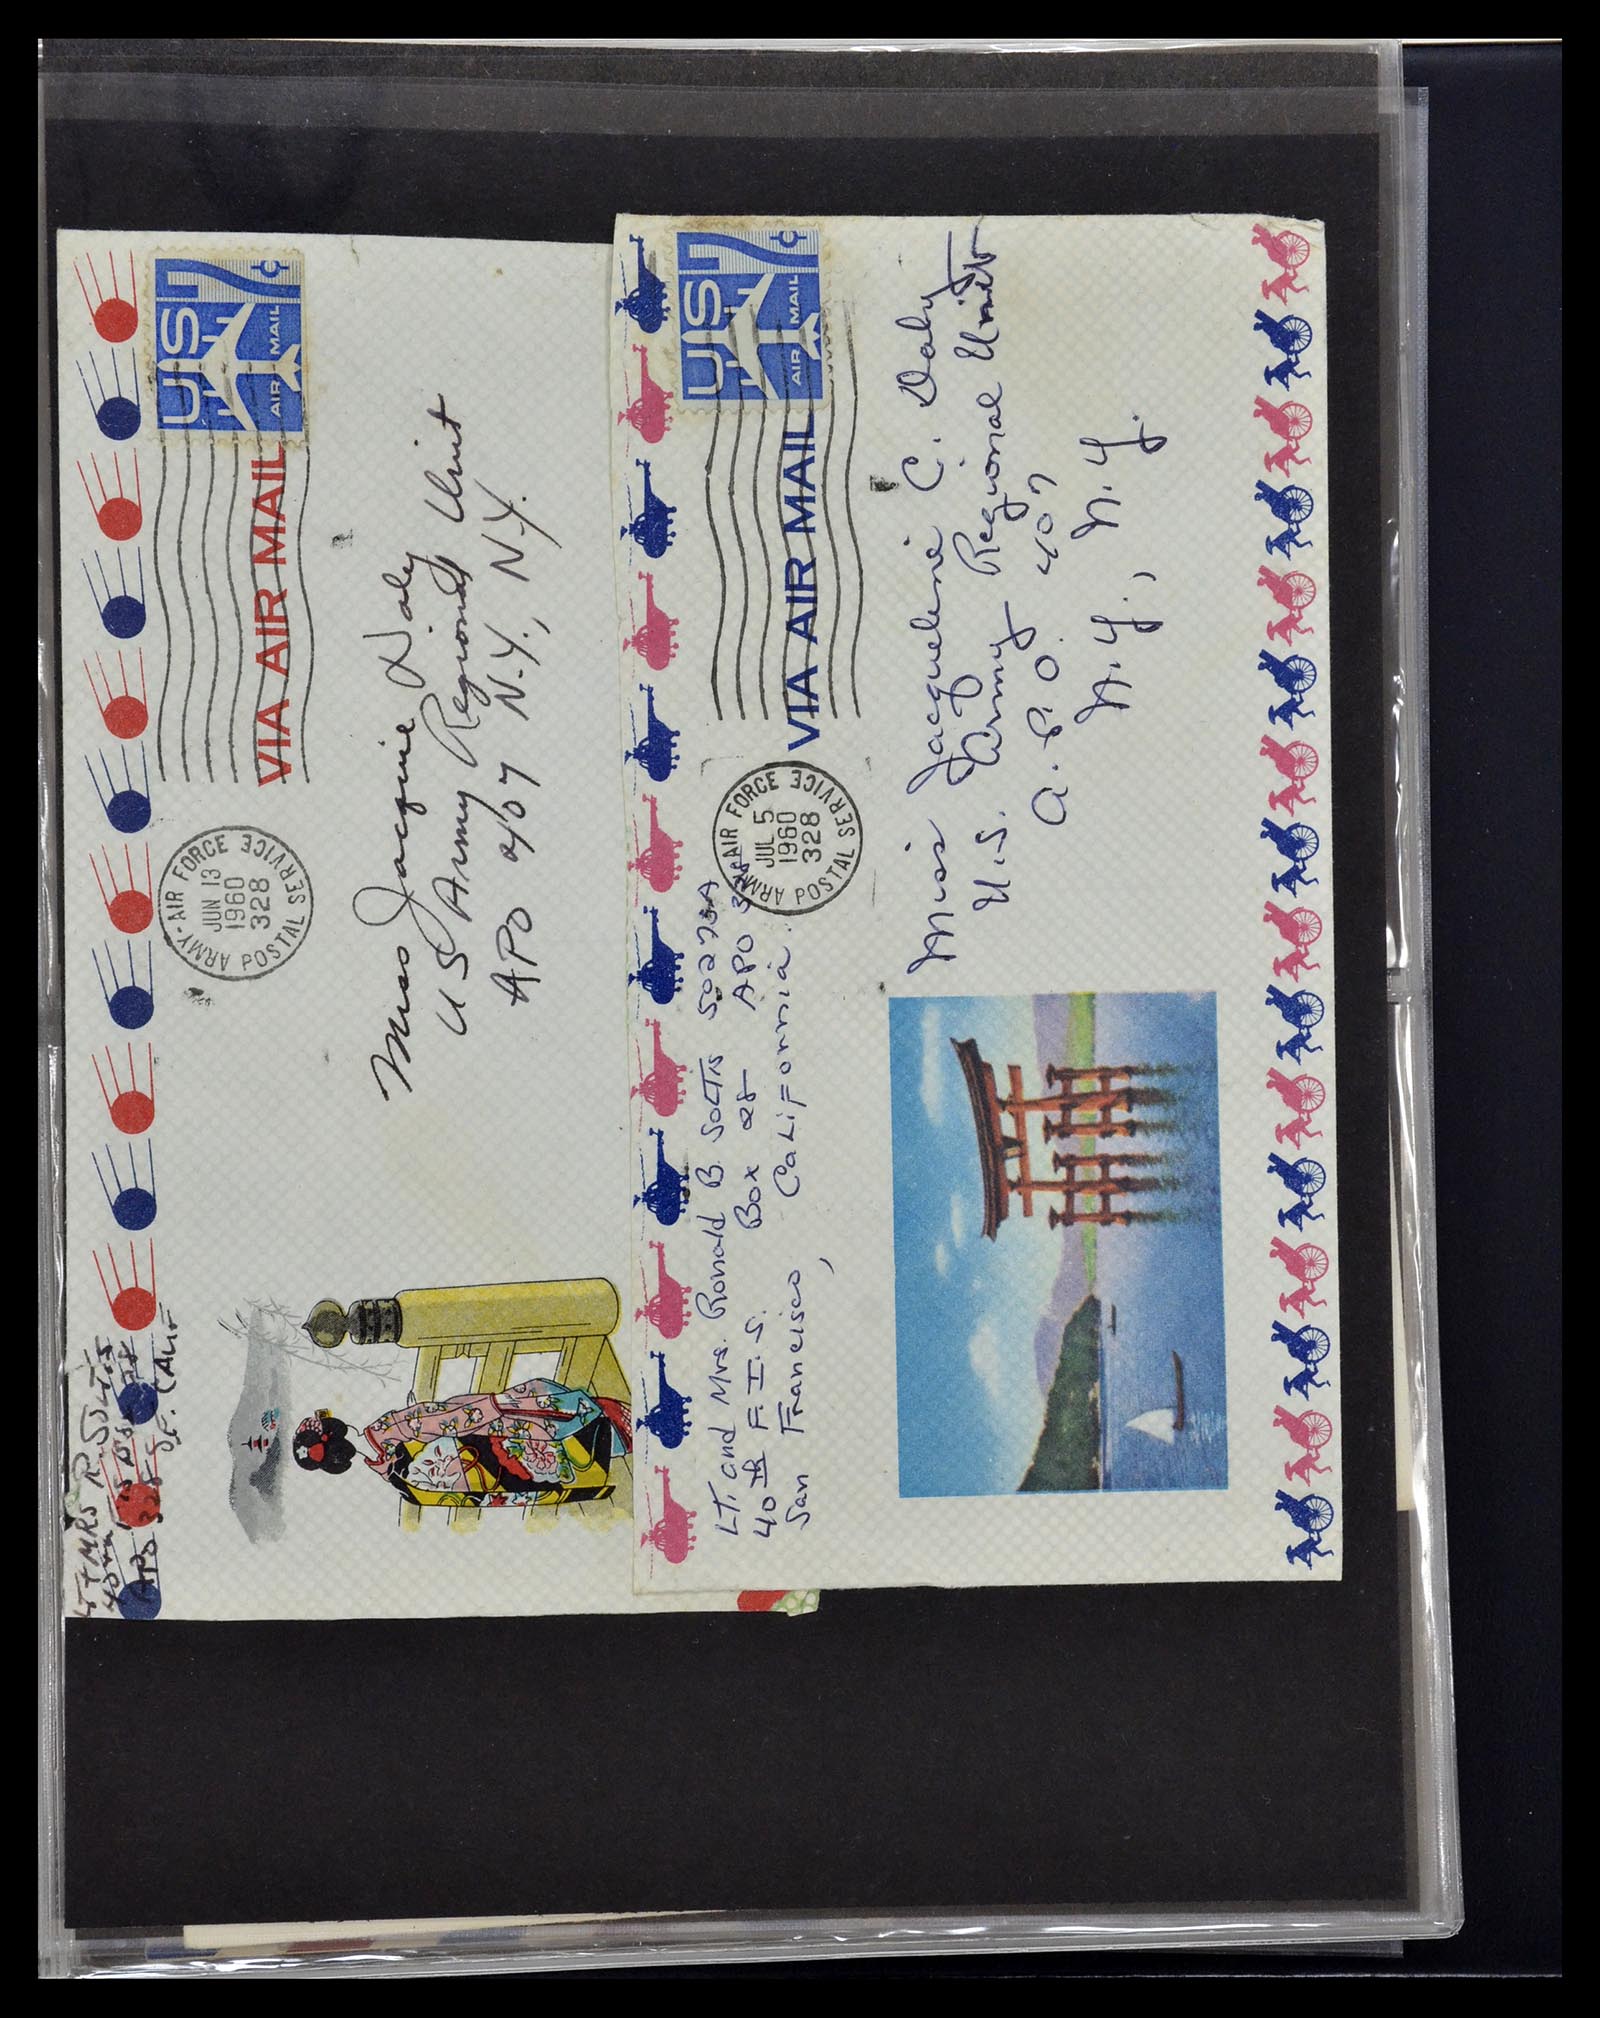 LT + MRS R. SOLTIS
APO 328 S.F. CALIF
US 7¢
AIR MAIL
VIA AIR MAIL
ARMY·AIR FORCE POSTAL SERVICE
JUN 13
1960
328
Miss Jacquie Daly
US Army Regional Unit
APO 407 N.Y., N.Y.
US 7¢
AIR MAIL
VIA AIR MAIL
ARMY·AIR FORCE POSTAL SERVICE
JUL 5
1960
328
LT. and Mrs. Ronald B. Soltis
40th F.I.S. Box 28 APO
San Francisco, California.
Miss Jacqueline C. Daly
U.S. Army Regional Unit
A.P.O. 407
N.Y., N.Y.